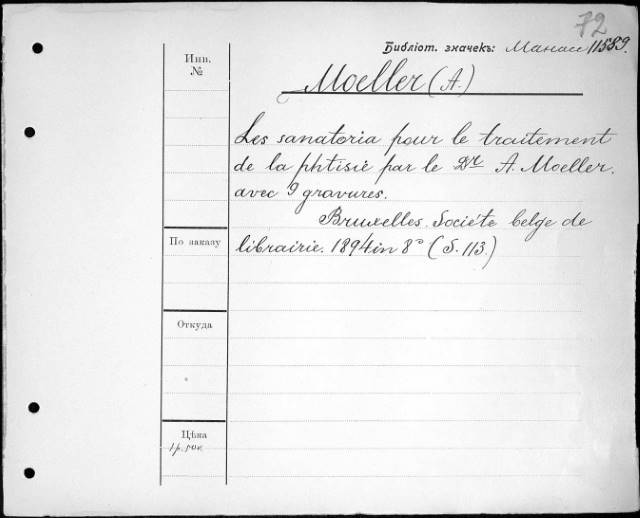 72
Библіот. значекъ: Манасс 11589.
Инв.
№
Moeller (A.)
Les sanatoria pour le traitement
de la phtisie par le Dr A. Moeller.
avec 9 gravures.
Bruxelles. Société belge de
librairie. 1894 in 8° (S. 113.)
По заказу
Откуда
Цѣна
1 р. 50 к.